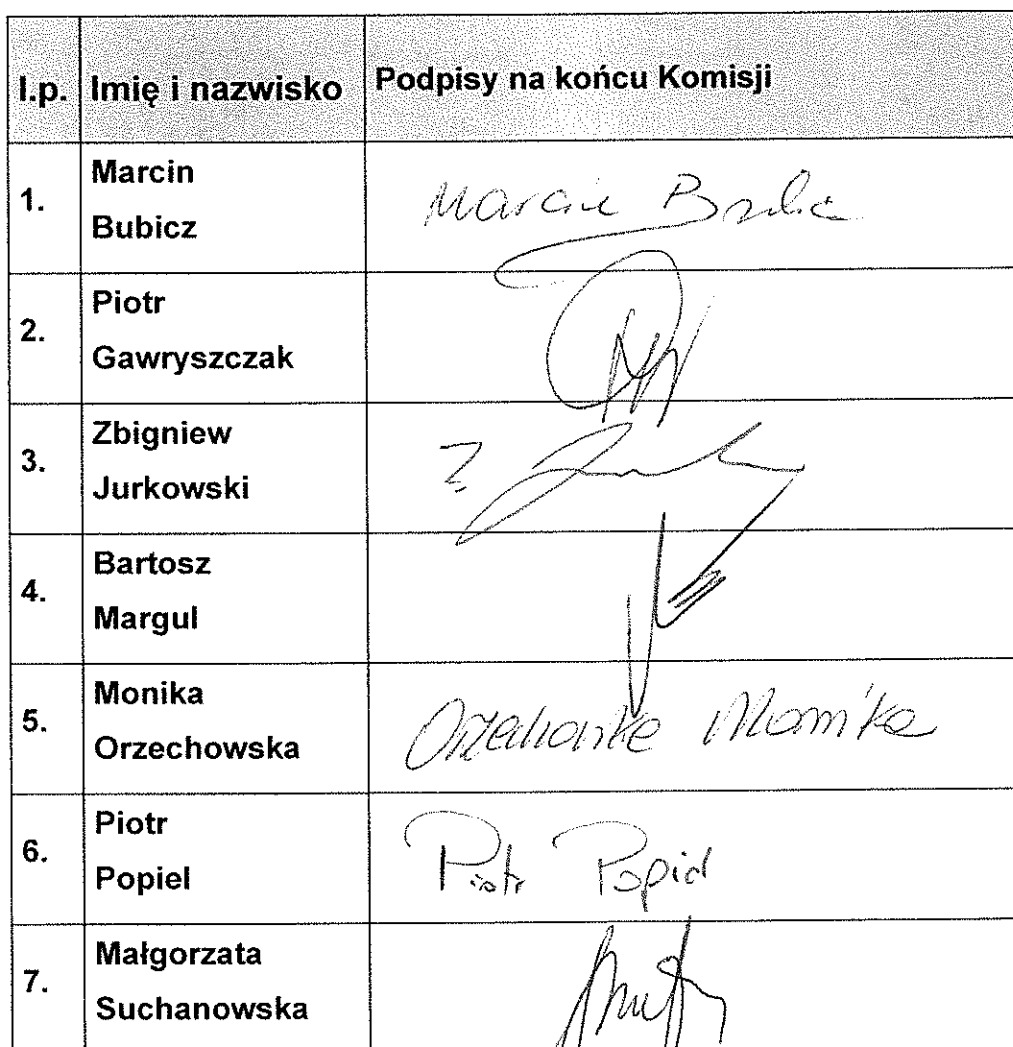 l.p. Imię i nazwisko Podpisy na końcu Komisji
1. Marcin Bubicz Marcin
2. Piotr Gawryszczak
3. Zbigniew Jurkowski Z
4. Bartosz Margul
5. Monika Orzechowska Orzechowska Monika
6. Piotr Popiel Piotr Popiel
7. Małgorzata Suchanowska